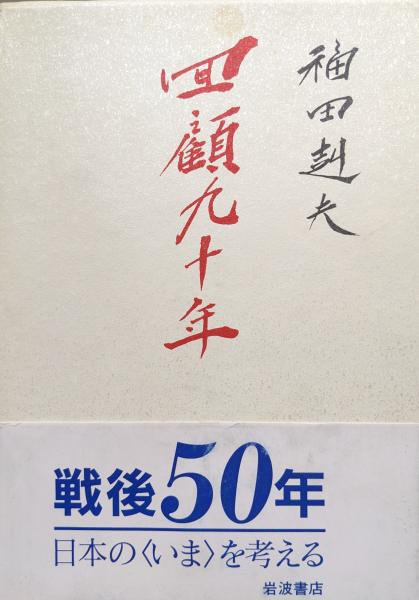 福田赳夫
回顧九十年
戦後50年
日本の〈いま〉を考える
岩波書店